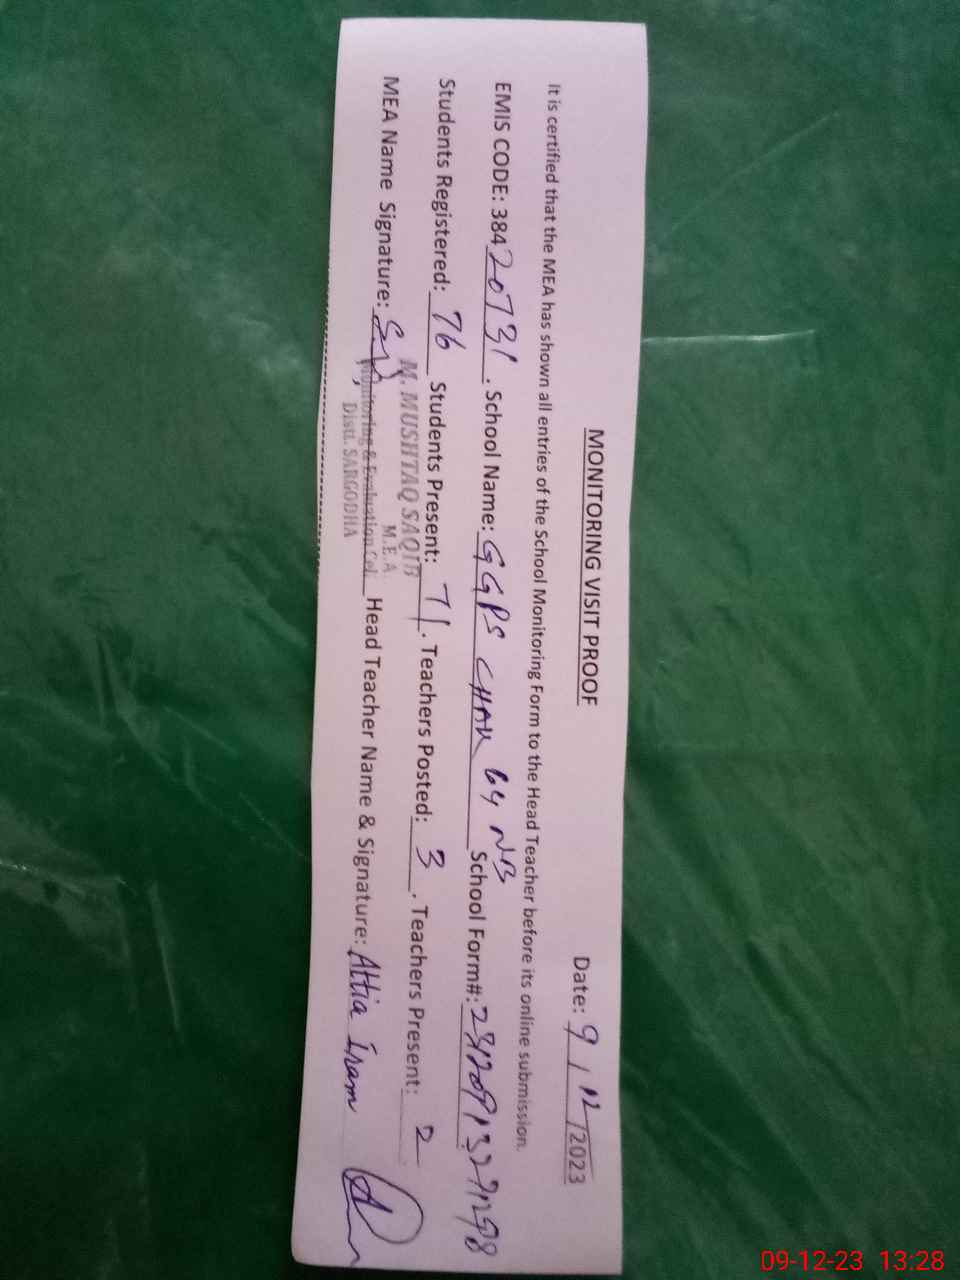 MONITORING VISIT PROOF
Date: 9/12/2023
It is certified that the MEA has shown all entries of the School Monitoring Form to the Head Teacher before its online submission.
EMIS CODE: 38420731. School Name: GGPS CHAK 64 NB School Form#:
Students Registered: 76 Students Present: 71. Teachers Posted: 3. Teachers Present: 2
M. MUSHTAQ SAQIB
M.E.A
MEA Name Signature: Head Teacher Name & Signature: Attia Iram
Monitoring & Evaluation Cel.
Distt. SARGODHA
09-12-23 13:28